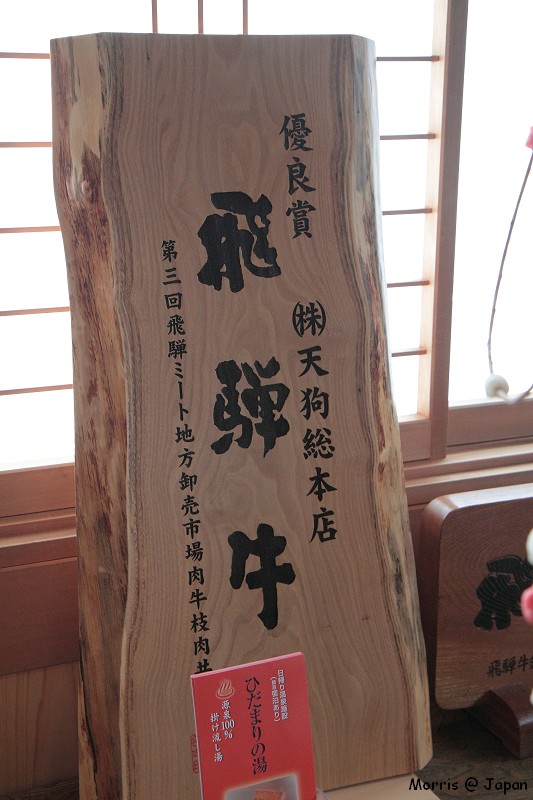 優良賞
㈱天狗総本店
飛騨牛
第三回飛騨ミート地方卸売市場肉牛枝肉共
日帰り温泉施設
ひだまりの湯
源泉100%
掛け流し湯
飛騨牛
Morris @ Japan